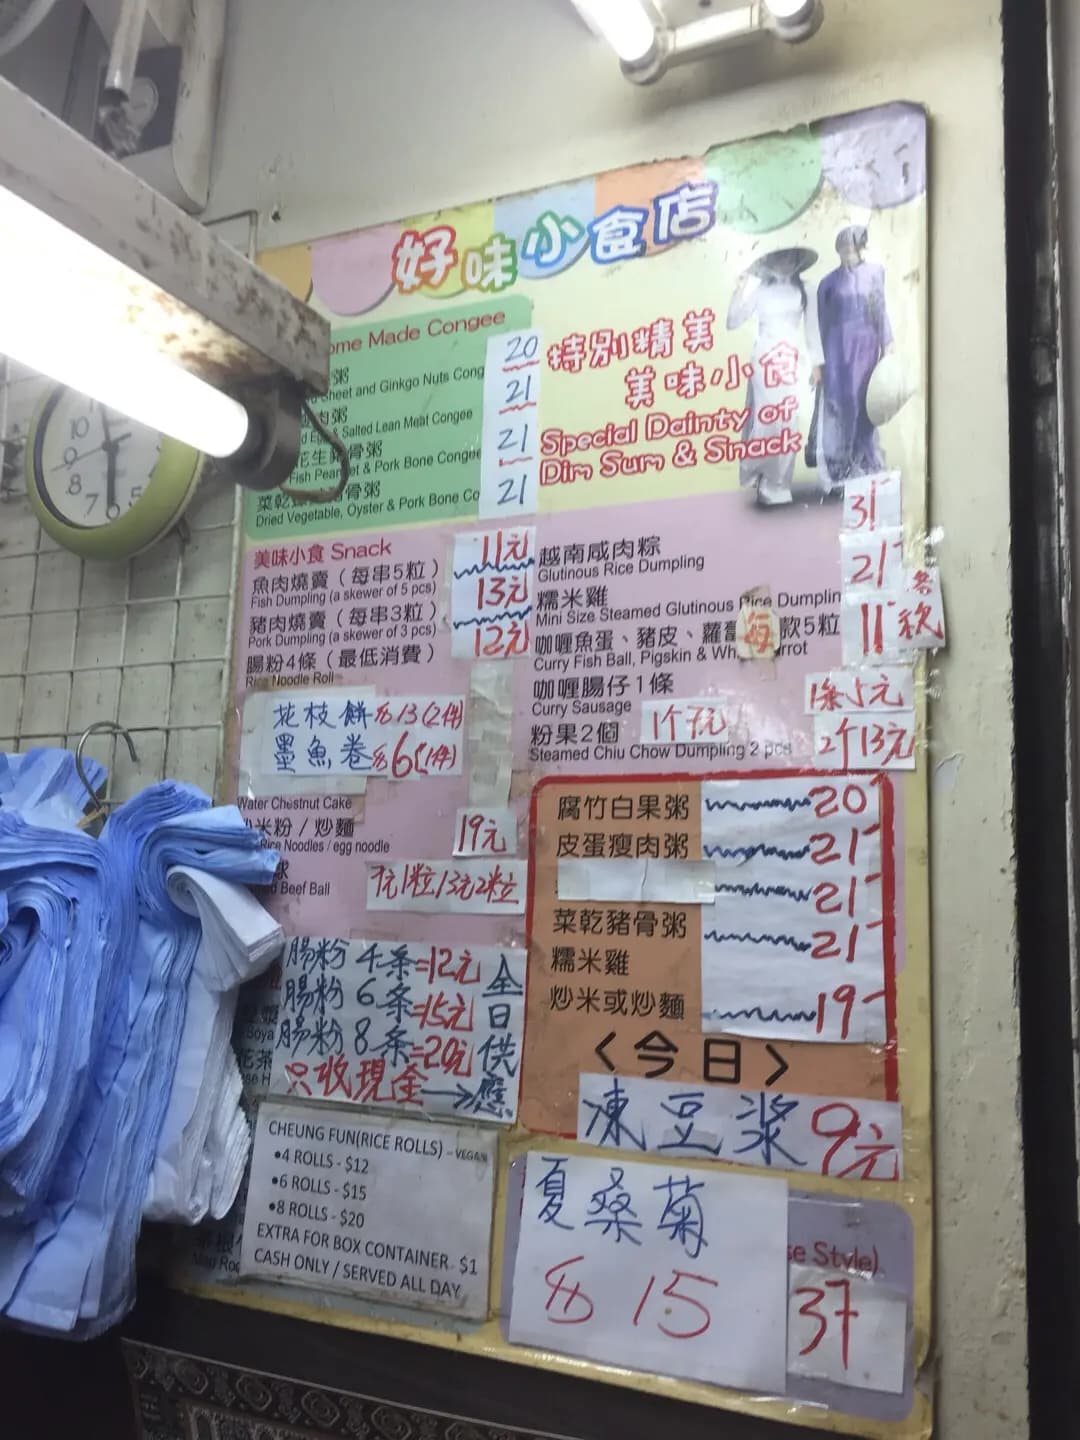 好味小食店
ome Made Congee
粥 20
Sheet and Ginkgo Nuts Cong
肉粥 21
& Salted Lean Meat Congee
花生 骨粥 21
Fish Peanut & Pork Bone Congee
菜乾 骨粥 21
Dried Vegetable, Oyster & Pork Bone Co
特別精美
美味小食
Special Dainty of
Dim Sum & Snack
美味小食 Snack
魚肉燒賣（每串5粒） 11元
Fish Dumpling (a skewer of 5 pcs)
豬肉燒賣（每串3粒） 13元
Pork Dumpling (a skewer of 3 pcs)
腸粉4條（最低消費） 12元
Rice Noodle Roll
花枝餅 13(2件)
墨魚卷 6(1件)
Water Chestnut Cake
米粉/炒麵 19元
Rice Noodles / egg noodle
球
Beef Ball
7元1粒13元2粒
腸粉4条=12元
腸粉6条=15元
腸粉8条=20元
只收現金→
全日供應
CHEUNG FUN(RICE ROLLS) - VEGAN
•4 ROLLS - $12
•6 ROLLS - $15
•8 ROLLS - $20
EXTRA FOR BOX CONTAINER - $1
CASH ONLY / SERVED ALL DAY
越南咸肉粽 31
Glutinous Rice Dumpling
糯米雞 21
Mini Size Steamed Glutinous Rice Dumplin
咖喱魚蛋、豬皮、蘿 每款5粒 11
Curry Fish Ball, Pigskin & Wh rrot
咖喱腸仔1條 1条5元
Curry Sausage
粉果2個 1个7元 2个13元
Steamed Chiu Chow Dumpling 2 pcs
腐竹白果粥 20
皮蛋瘦肉粥 21
21
菜乾豬骨粥 21
糯米雞
炒米或炒麵 19
<今日>
凍豆漿 9元
夏桑菊
15
se Style)
37